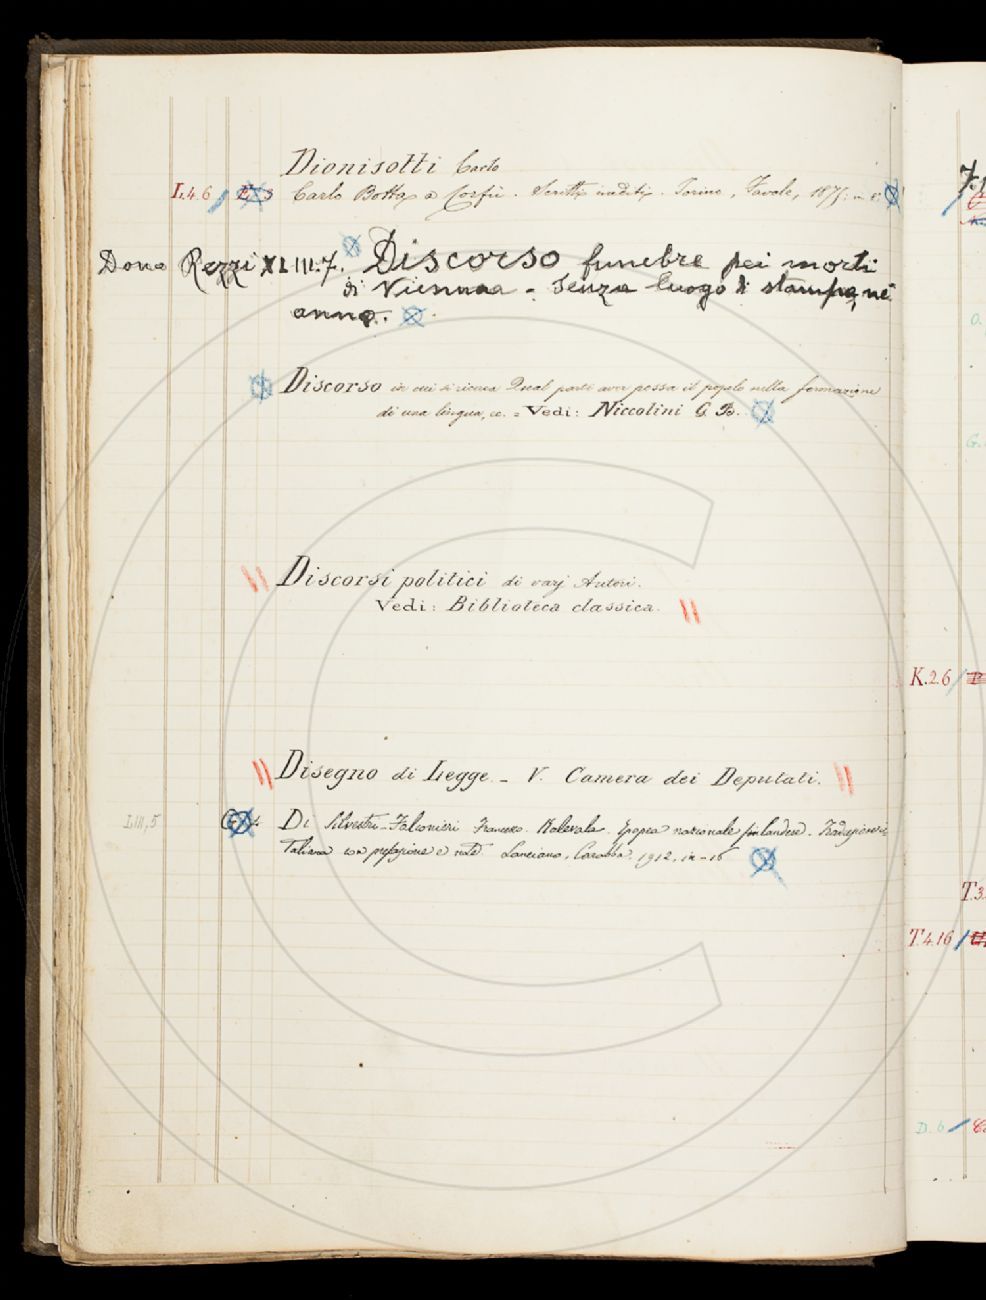 Dionisotti Carlo
L.4.6 Carlo Botta a Corfù. Scritti inediti. Torino, Favale, 1875, in
Dono Rezzi XLIII.7. Discorso funebre pei morti
di Vienna - Senza luogo di stampa, nè
anno.
Discorso in cui si ricerca Qual parte aver possa il popolo nella formazione
di una lingua, ec. = Vedi: Niccolini G. B.
Discorsi politici di varj Autori.
Vedi: Biblioteca classica.
Disegno di Legge - V. Camera dei Deputati.
LIII,5 Di Silvestri-Falconieri Francesco. Kalevala. Epopea nazionale finlandese. Traduzione i
taliana con prefazione e note. Lanciano, Carabba, 1912, in-16
K.2.6
T.3.
T.4.16
D. 6